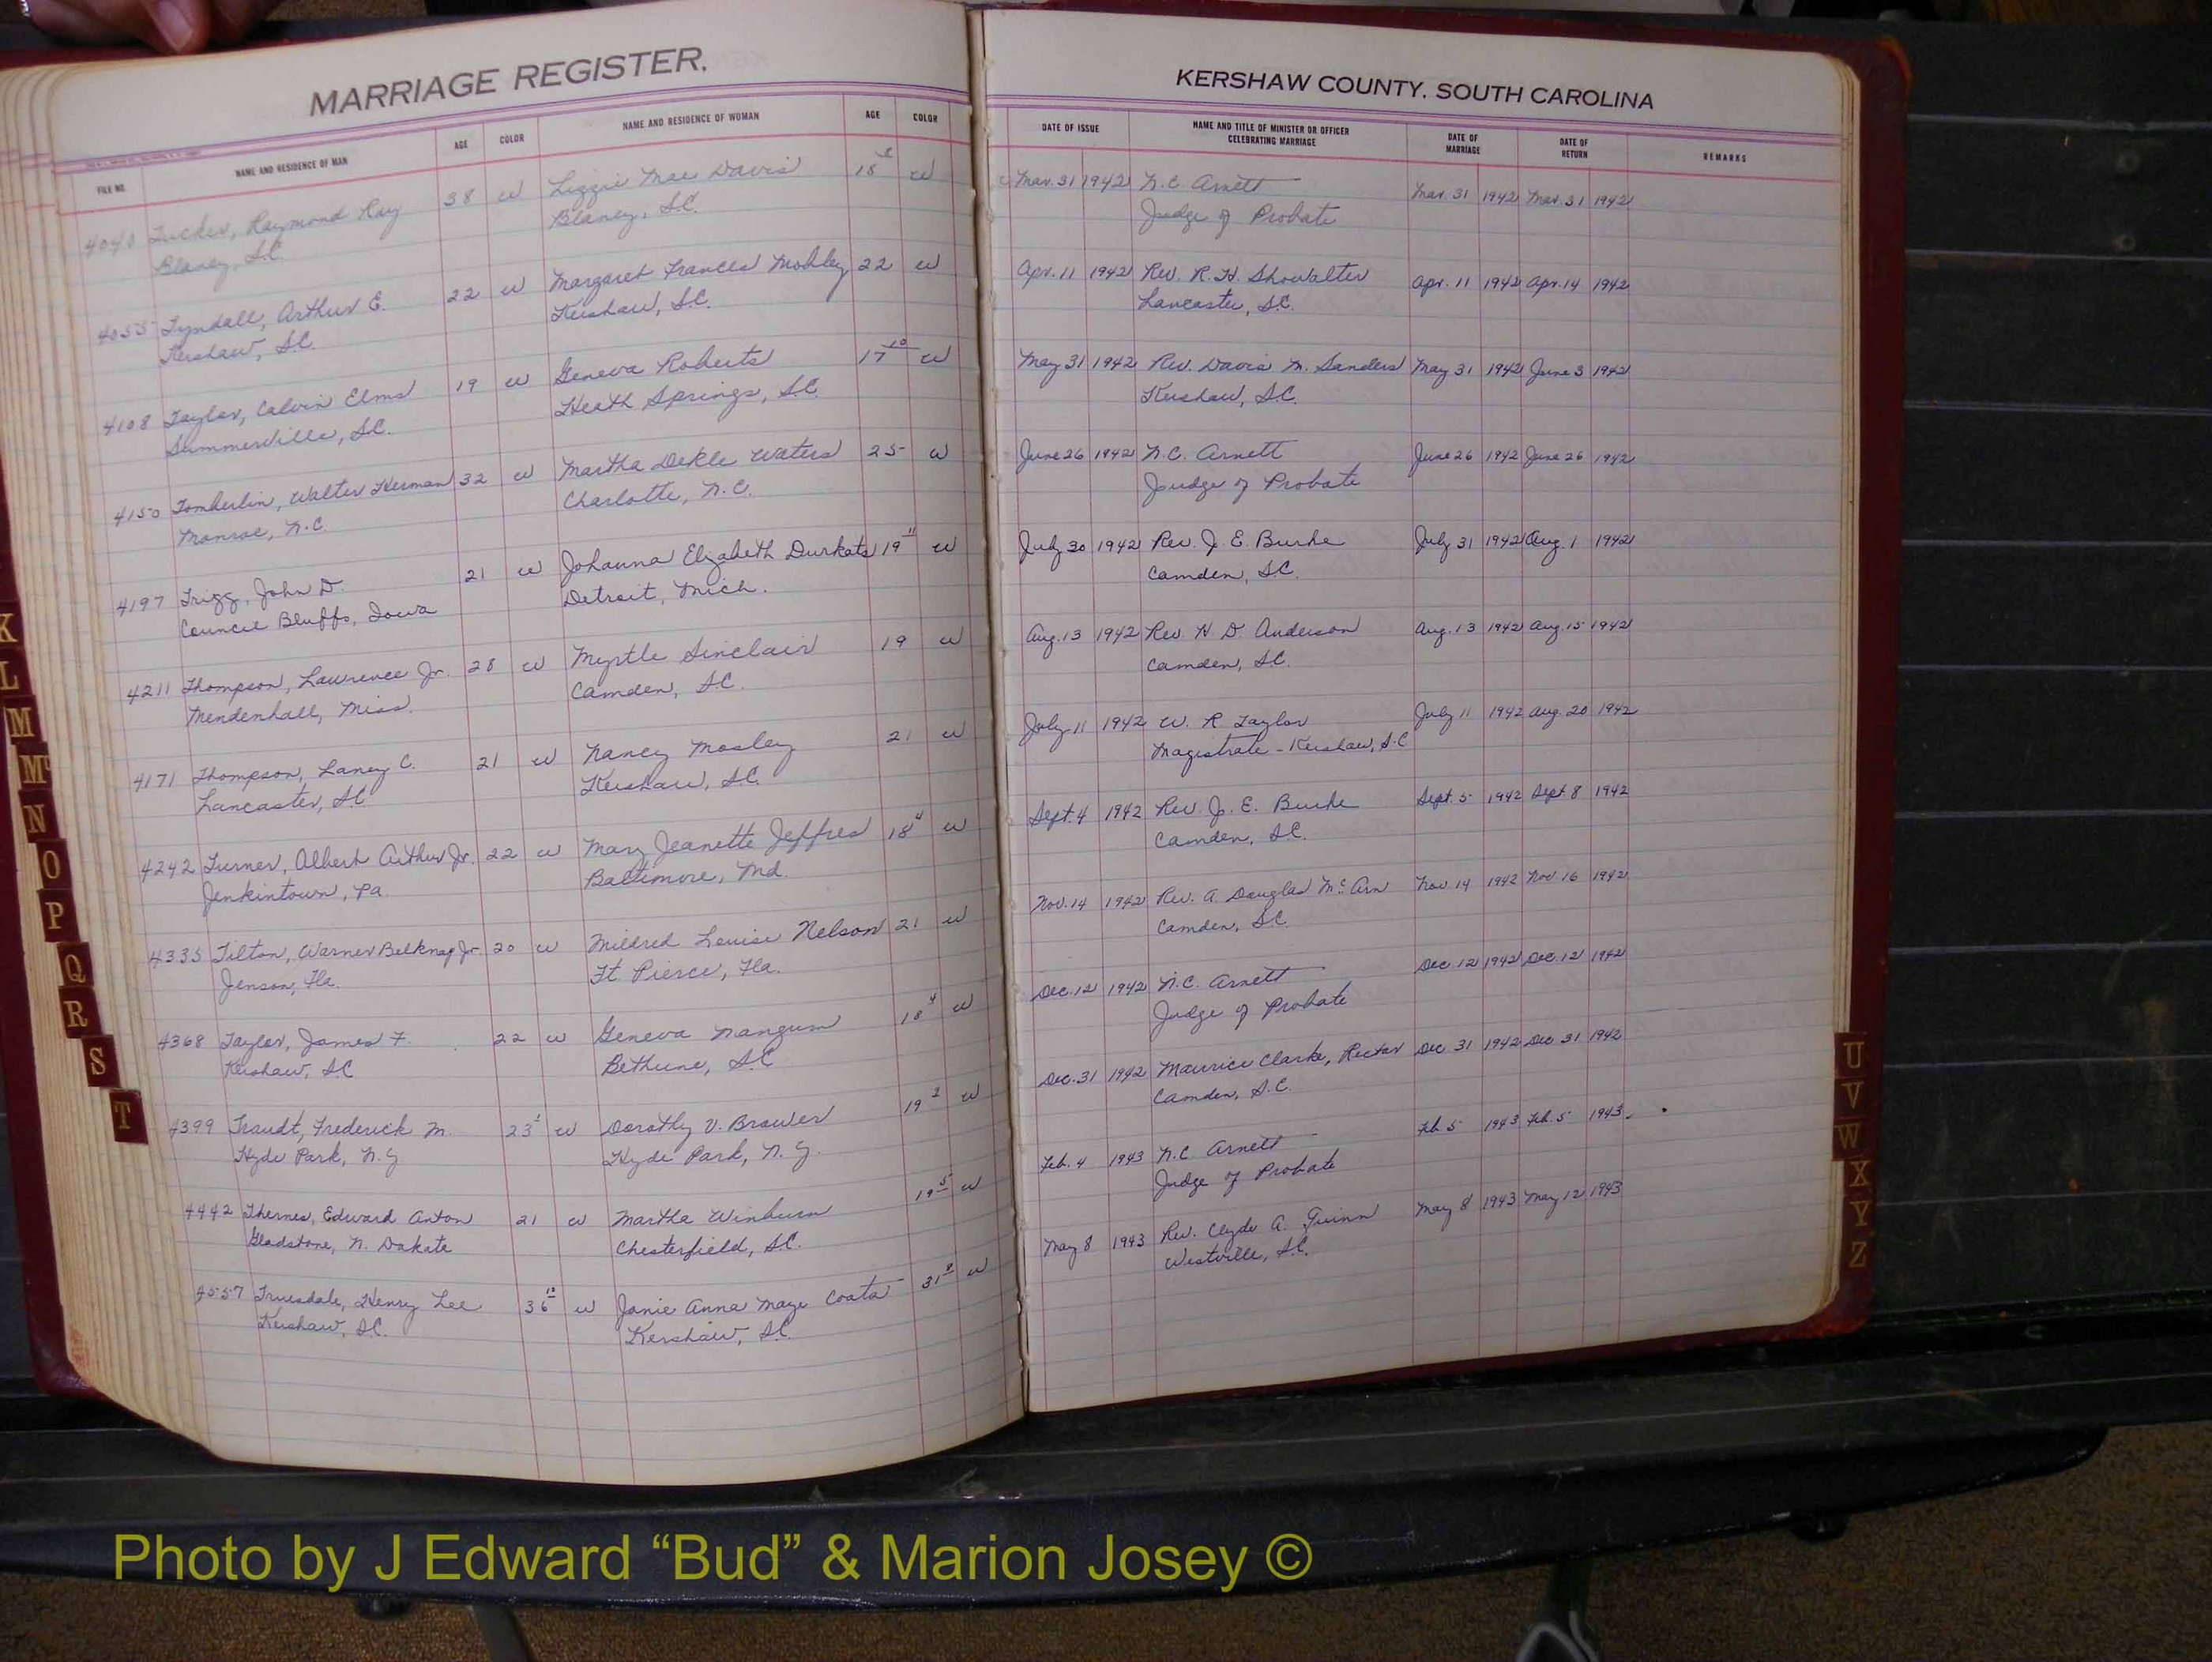 MARRIAGE REGISTER.
FILE NO. NAME AND RESIDENCE OF MAN AGE COLOR NAME AND RESIDENCE OF WOMAN AGE COLOR
4040 Tucker, Raymond Ray 38 W Lizzie Mae Davis 18 W
Blaney, S.C. Blaney, S.C.
4055 Tyndall, Arthur E. 22 W Margaret Frances Mobley 22 W
Kershaw, S.C. Kershaw, S.C.
4108 Taylor, Calvin Elms 19 W Geneva Roberts 17 10 W
Summerville, S.C. Heath Springs, S.C.
4150 Tomberlin, Walter Herman 32 W Martha Dekle Waters 25 W
Monroe, N.C. Charlotte, N.C.
4197 Trigg, John D. 21 W Johanna Elizabeth Durkats 19 11 W
Council Bluffs, Iowa Detroit, Mich.
4211 Thompson, Lawrence Jr. 28 W Myrtle Sinclair 19 W
Mendenhall, Miss. Camden, S.C.
4171 Thompson, Laney C. 21 W Nancy Mosley 21 W
Lancaster, S.C. Kershaw, S.C.
4242 Turner, Albert Arthur Jr. 22 W Mary Jeanette Jeffres 18 4 W
Jenkintown, Pa. Baltimore, Md.
4335 Tilton, Warner Belknap Jr. 20 W Mildred Louise Nelson 21 W
Jenson, Fla. Ft. Pierce, Fla.
4368 Taylor, James F. 22 W Geneva Mangum 18 4 W
Kershaw, S.C. Bethune, S.C.
4399 Traudt, Frederick M. 23 1 W Dorothy V. Brower 19 2 W
Hyde Park, N.Y. Hyde Park, N.Y.
4442 Thernes, Edward Anton 21 W Martha Winburn 19 5 W
Gladstone, N. Dakate Chesterfield, S.C.
4557 Truesdale, Henry Lee 36 10 W Janie Anna Maye Coats 31 9 W
Kershaw, S.C. Kershaw, S.C.
K
L
M
Mc
N
O
P
Q
R
S
T
KERSHAW COUNTY, SOUTH CAROLINA
DATE OF ISSUE NAME AND TITLE OF MINISTER OR OFFICER CELEBRATING MARRIAGE DATE OF MARRIAGE DATE OF RETURN REMARKS
Mar. 31 1942 N.C. Arnett Mar. 31 1942 Mar. 31 1942
Judge of Probate
Apr. 11 1942 Rev. R. H. Showalter Apr. 11 1942 Apr. 14 1942
Lancaster, S.C.
May 31 1942 Rev. Davis M. Sanders May 31 1942 June 3 1942
Kershaw, S.C.
June 26 1942 N.C. Arnett June 26 1942 June 26 1942
Judge of Probate
July 30 1942 Rev. J. E. Burke July 31 1942 Aug. 1 1942
Camden, S.C.
Aug. 13 1942 Rev. H. D. Anderson Aug. 13 1942 Aug. 15 1942
Camden, S.C.
July 11 1942 W. R Taylor July 11 1942 Aug. 20 1942
Magistrate - Kershaw, S.C
Sept. 4 1942 Rev. J. E. Burke Sept. 5 1942 Sept. 8 1942
Camden, S.C.
Nov. 14 1942 Rev. A. Douglas McArn Nov. 14 1942 Nov. 16 1942
Camden, S.C.
Dec. 12 1942 N.C. Arnett Dec. 12 1942 Dec. 12 1942
Judge of Probate
Dec. 31 1942 Maurice Clarke, Rector Dec. 31 1942 Dec. 31 1942
Camden, S.C.
Feb. 4 1943 N.C. Arnett Feb. 5 1943 Feb. 5 1943
Judge of Probate
May 8 1943 Rev. Clyde A. Quinn May 8 1943 May 12 1943
Westville, S.C.
U
V
W
X
Y
Z
Photo by J Edward “Bud” & Marion Josey ©